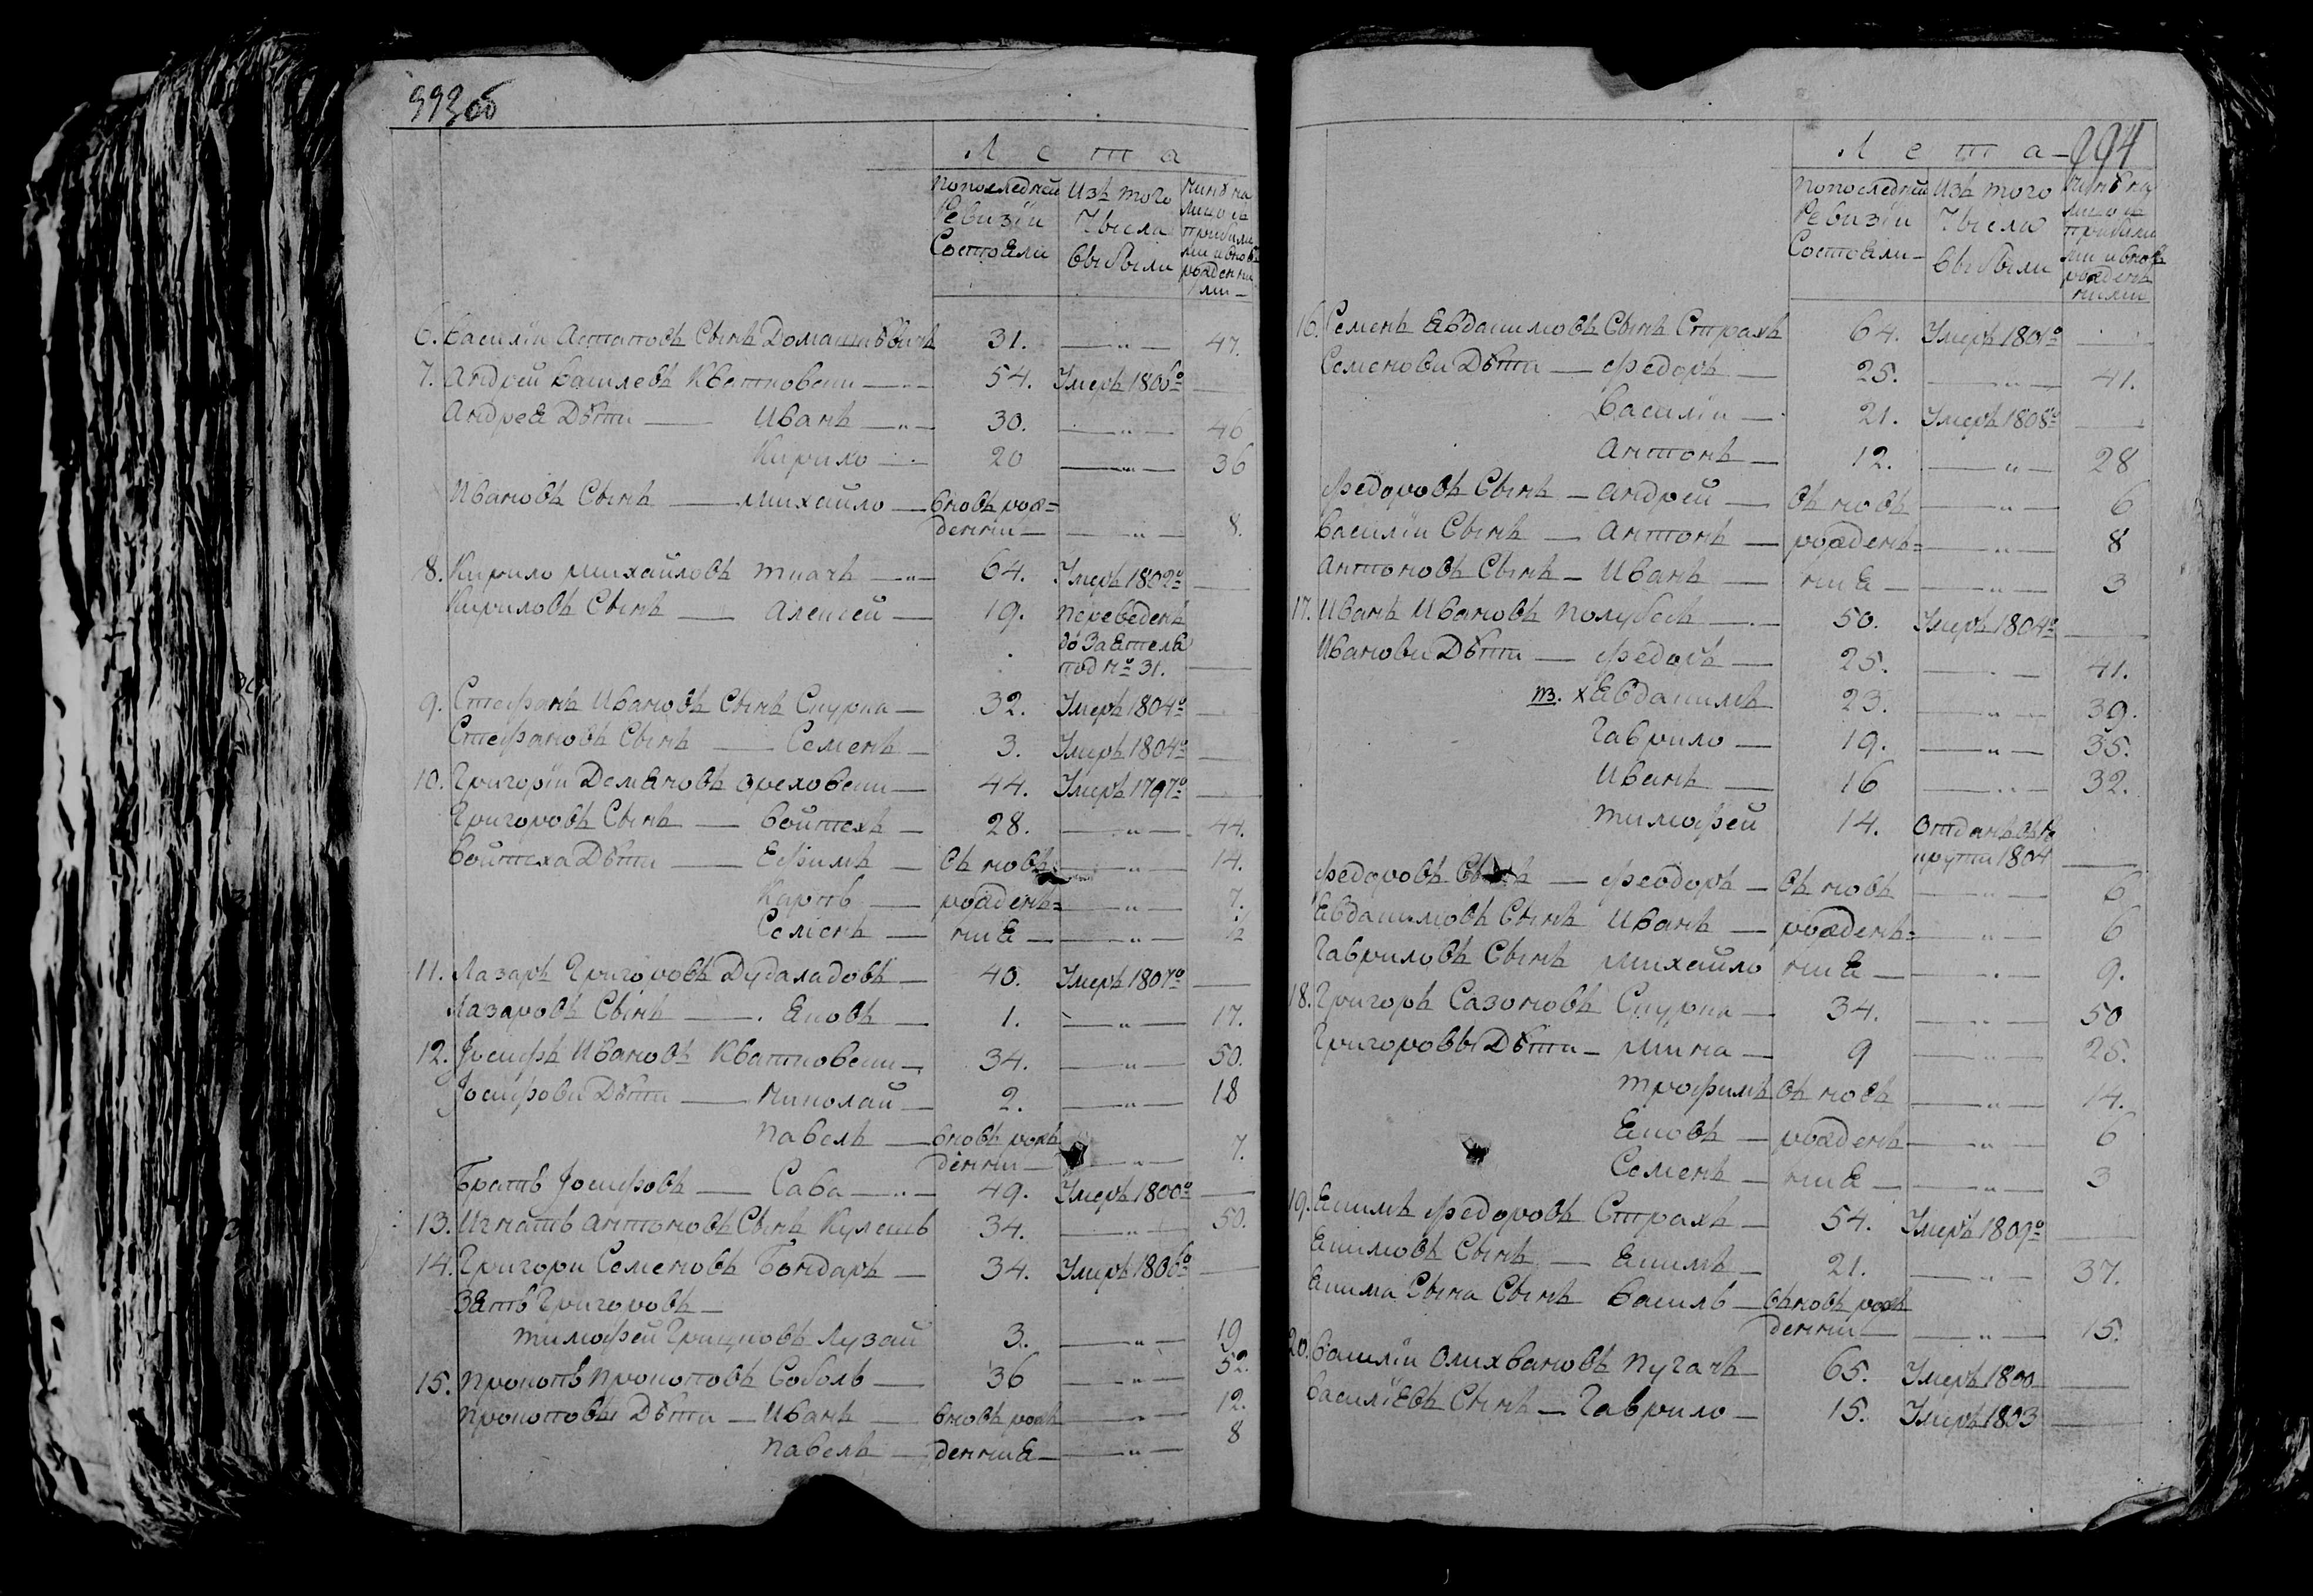 993об
Лета
По последней Ревизіи Состояли
Изъ того Числа выбыли
Ныне на лицо съ прибылими и вновь рожденними
6. Василіи Астаповъ Сынъ Домашевичъ 31. —„— 47.
7. Андрей Василевъ Квятковски — 54. Умеръ 1806го —
Андрея Дѣти — Иванъ —„— 30. —„— 46
Кирило — 20 —„— 36
Ивановъ Сынъ — Михайло — вновь рож=
денни — —„— 8.
8. Кирило Михайловъ Ткачъ —„— 64. Умеръ 1802го —
Кириловъ Сынъ — Алексей — 19. переведенъ
до Зятеля
под №о 31. —
9. Стефанъ Ивановъ Сынъ Скурка — 32. Умеръ 1804го —
Стефановъ Сынъ — Семенъ — 3. Умеръ 1804го —
10. Григоріи Демяновъ Ореховски — 44. Умеръ 1797го —
Григоровъ Сынъ — Войтехъ — 28. —„— 44.
Войтеха Дѣти — Ефимъ — въ новь —„— 14.
Карпъ — рожден= —„— 7.
Семенъ — ния — —„— ½
11. Лазаръ Григоровъ Дудаладовъ — 40. Умеръ 1807го —
Лазаровъ Сынъ — Яковъ — 1. —„— 17.
12. Іосифъ Ивановъ Квятковски — 34. —„— 50.
Іосифови Дѣти — Николай — 2. —„— 18
Павелъ — вновь рож
денни — —„— 7.
Братъ Іосифовъ — Сава —„— 49. Умеръ 1800го —
13. Игнатъ Антоновъ Сынъ Кулешъ 34. —„— 50.
14. Григори Семеновъ Бондаръ — 34. Умеръ 1806го —
Зять Григоровъ —
Тимофей Грицковъ Лузай 3. —„— 19
15. Прокопъ Прокоповъ Соболь — 36 —„— 52.
Прокоповы Дѣти — Иванъ — вновь рож —„— 12.
Павелъ — денния — —„— 8
994
Лета —
По последней Ревизіи Состояли —
Изъ того Числа выбыли
Ныне на лицо съ прибылими и вновь рожденними
16. Семенъ Евдакимовъ Сынъ Страхъ 64. Умеръ 1801го —
Семенови Дѣти — Федоръ — 25. —„— 41.
Василіи — 21. Умеръ 1808го —
Антонъ — 12. —„— 28
Федоровъ Сынъ — Андрей — въ новь —„— 6
Василіи Сынъ — Антонъ — рожденъ= —„— 8
Антоновъ Сынъ — Иванъ — ния — —„— 3
17. Иванъ Ивановъ Полубесъ — 50. Умеръ 1804го —
Иванови Дѣти — Федоръ — 25. —„— 41.
т. х Евдакимъ 23. —„— 39.
Гаврило — 19. —„— 35.
Иванъ — 16 —„— 32.
Тимофей 14. Отданъ въ Ре
крути 1804 —
Федоровъ Сынъ — Феодоръ — въ новь —„— 6
Евдакимовъ Сынъ Иванъ — рожденъ= —„— 6
Гавриловъ Сынъ Михайло ния — —„— 9.
18. Григоръ Сазоновъ Скурка — 34. —„— 50
Григоровы Дѣти — Мина — 9 —„— 25.
Трофимъ въ новь —„— 14.
Яковъ — рожденъ —„— 6
Семенъ — ния — —„— 3
19. Якимъ Федоровъ Страхъ — 54. Умеръ 1809го —
Якимовъ Сынъ — Якимъ — 21. —„— 37.
Якима Сына Сынъ Василь — въновь рож
денни — —„— 15.
20. Василіи Олихвановъ Пугачъ — 65. Умеръ 1800 —
Василіевъ Сынъ — Гаврило — 15. Умеръ 1803 —